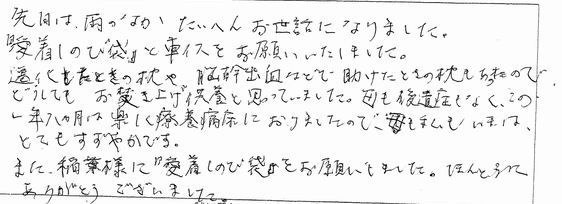 先日は、雨のなか たいへん お世話になりました。
『愛着しのび袋』と車イスを お願いいたしました。
遷化したときの枕や 脳幹出血などで 助けたときの枕もあったので
どうしても お焚き上げ供養と思っていました。母も後遺症もなく、この
一年八か月は 楽しく療養病床におりましたので、母も私も いまは、
とてもすずやかです。
また、稲葉様に『愛着しのび袋』をお願いしました。ほんとうに
ありがとう ございました。